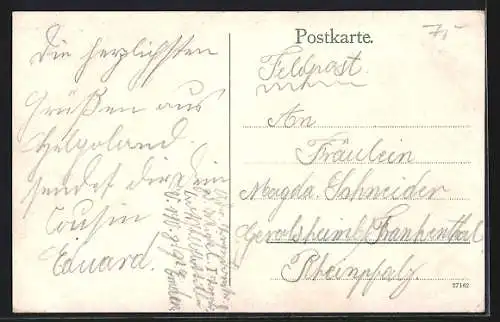 Die herzlichsten
Grüßen aus
Helgoland
sendet dir Dein
Cousin
Eduard.
Postkarte.
7,-
Feldpost.
An
Fräulein
Magda Schneider
Gerolsheim/Frankenthal
Rheinpfalz.
37162